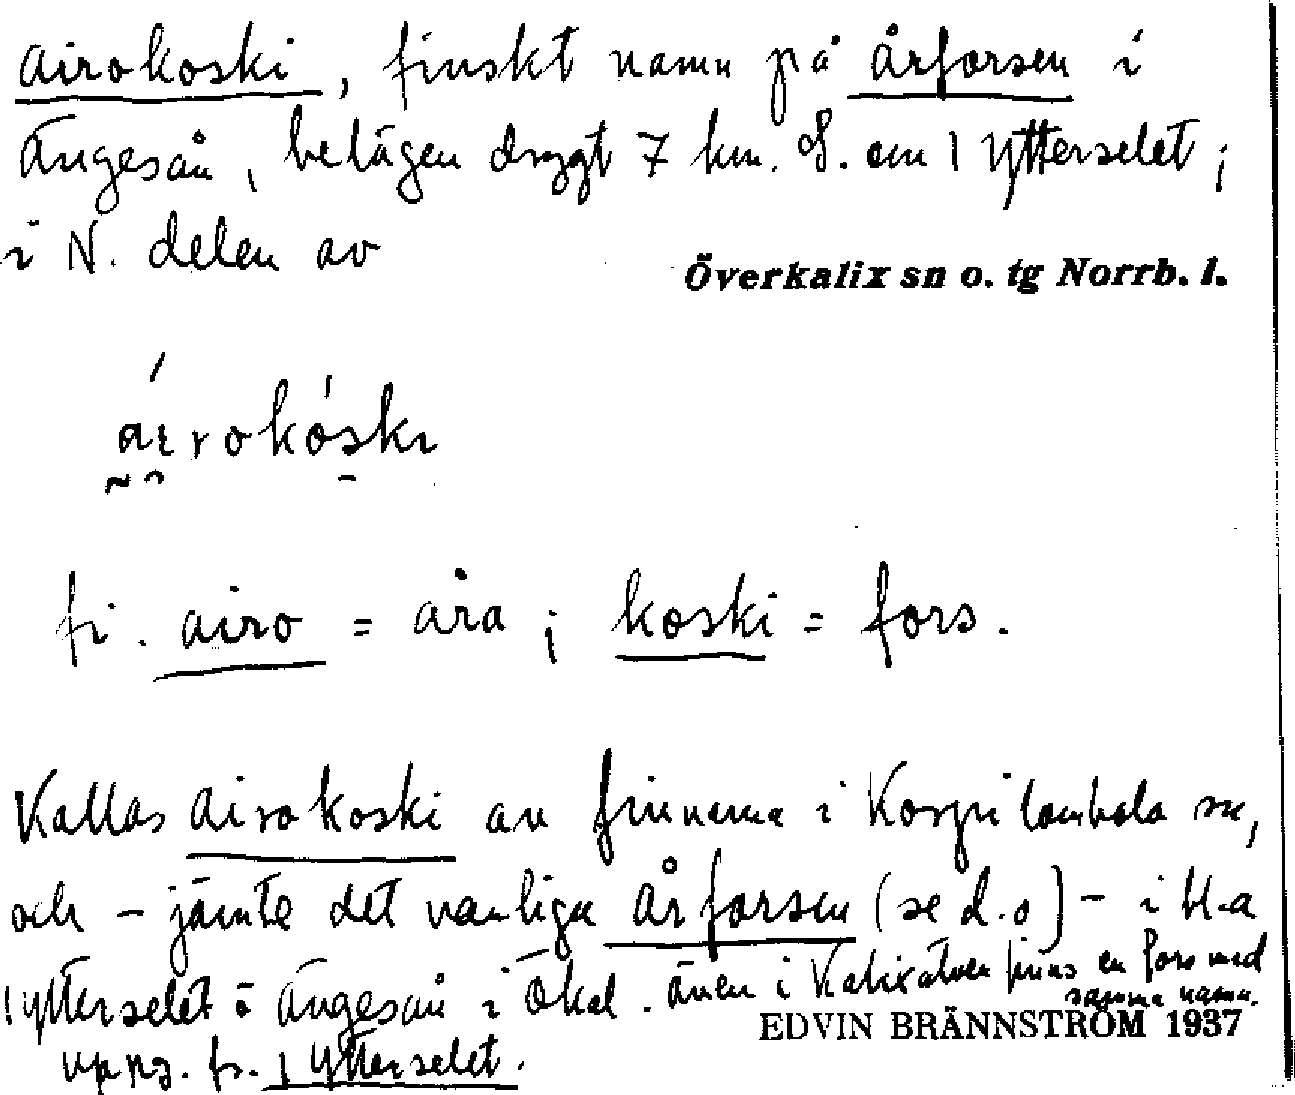 airokoski, finskt namn på årforsen i
Ängesån, belägen drygt 7 km. S. om 1 Ytterselet;
i N. delen av
Överkalix sn o. tg Norrb. l.
airokóski
fi. airo = åra; koski = fors.
Kallas airokoski av finnarna i Korpilombolo sn,
och - jämte det vanliga årforsen (se d.o) - i bl.a
1 Ytterselet o Ängesån i Ökal. även i Kalixälven finns en fors med
samma namn.
EDVIN BRÄNNSTRÖM 1937
uppg. fr. 1 Ytterselet.